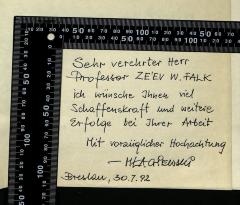 Sehr verehrter Herr
Professor ZE'EV W. FALK
ich wünsche Ihnen viel
Schaffenskraft und weitere
Erfolge bei Ihrer Arbeit
Mit vorzüglicher Hochachtung
Breslau, 30.7.92